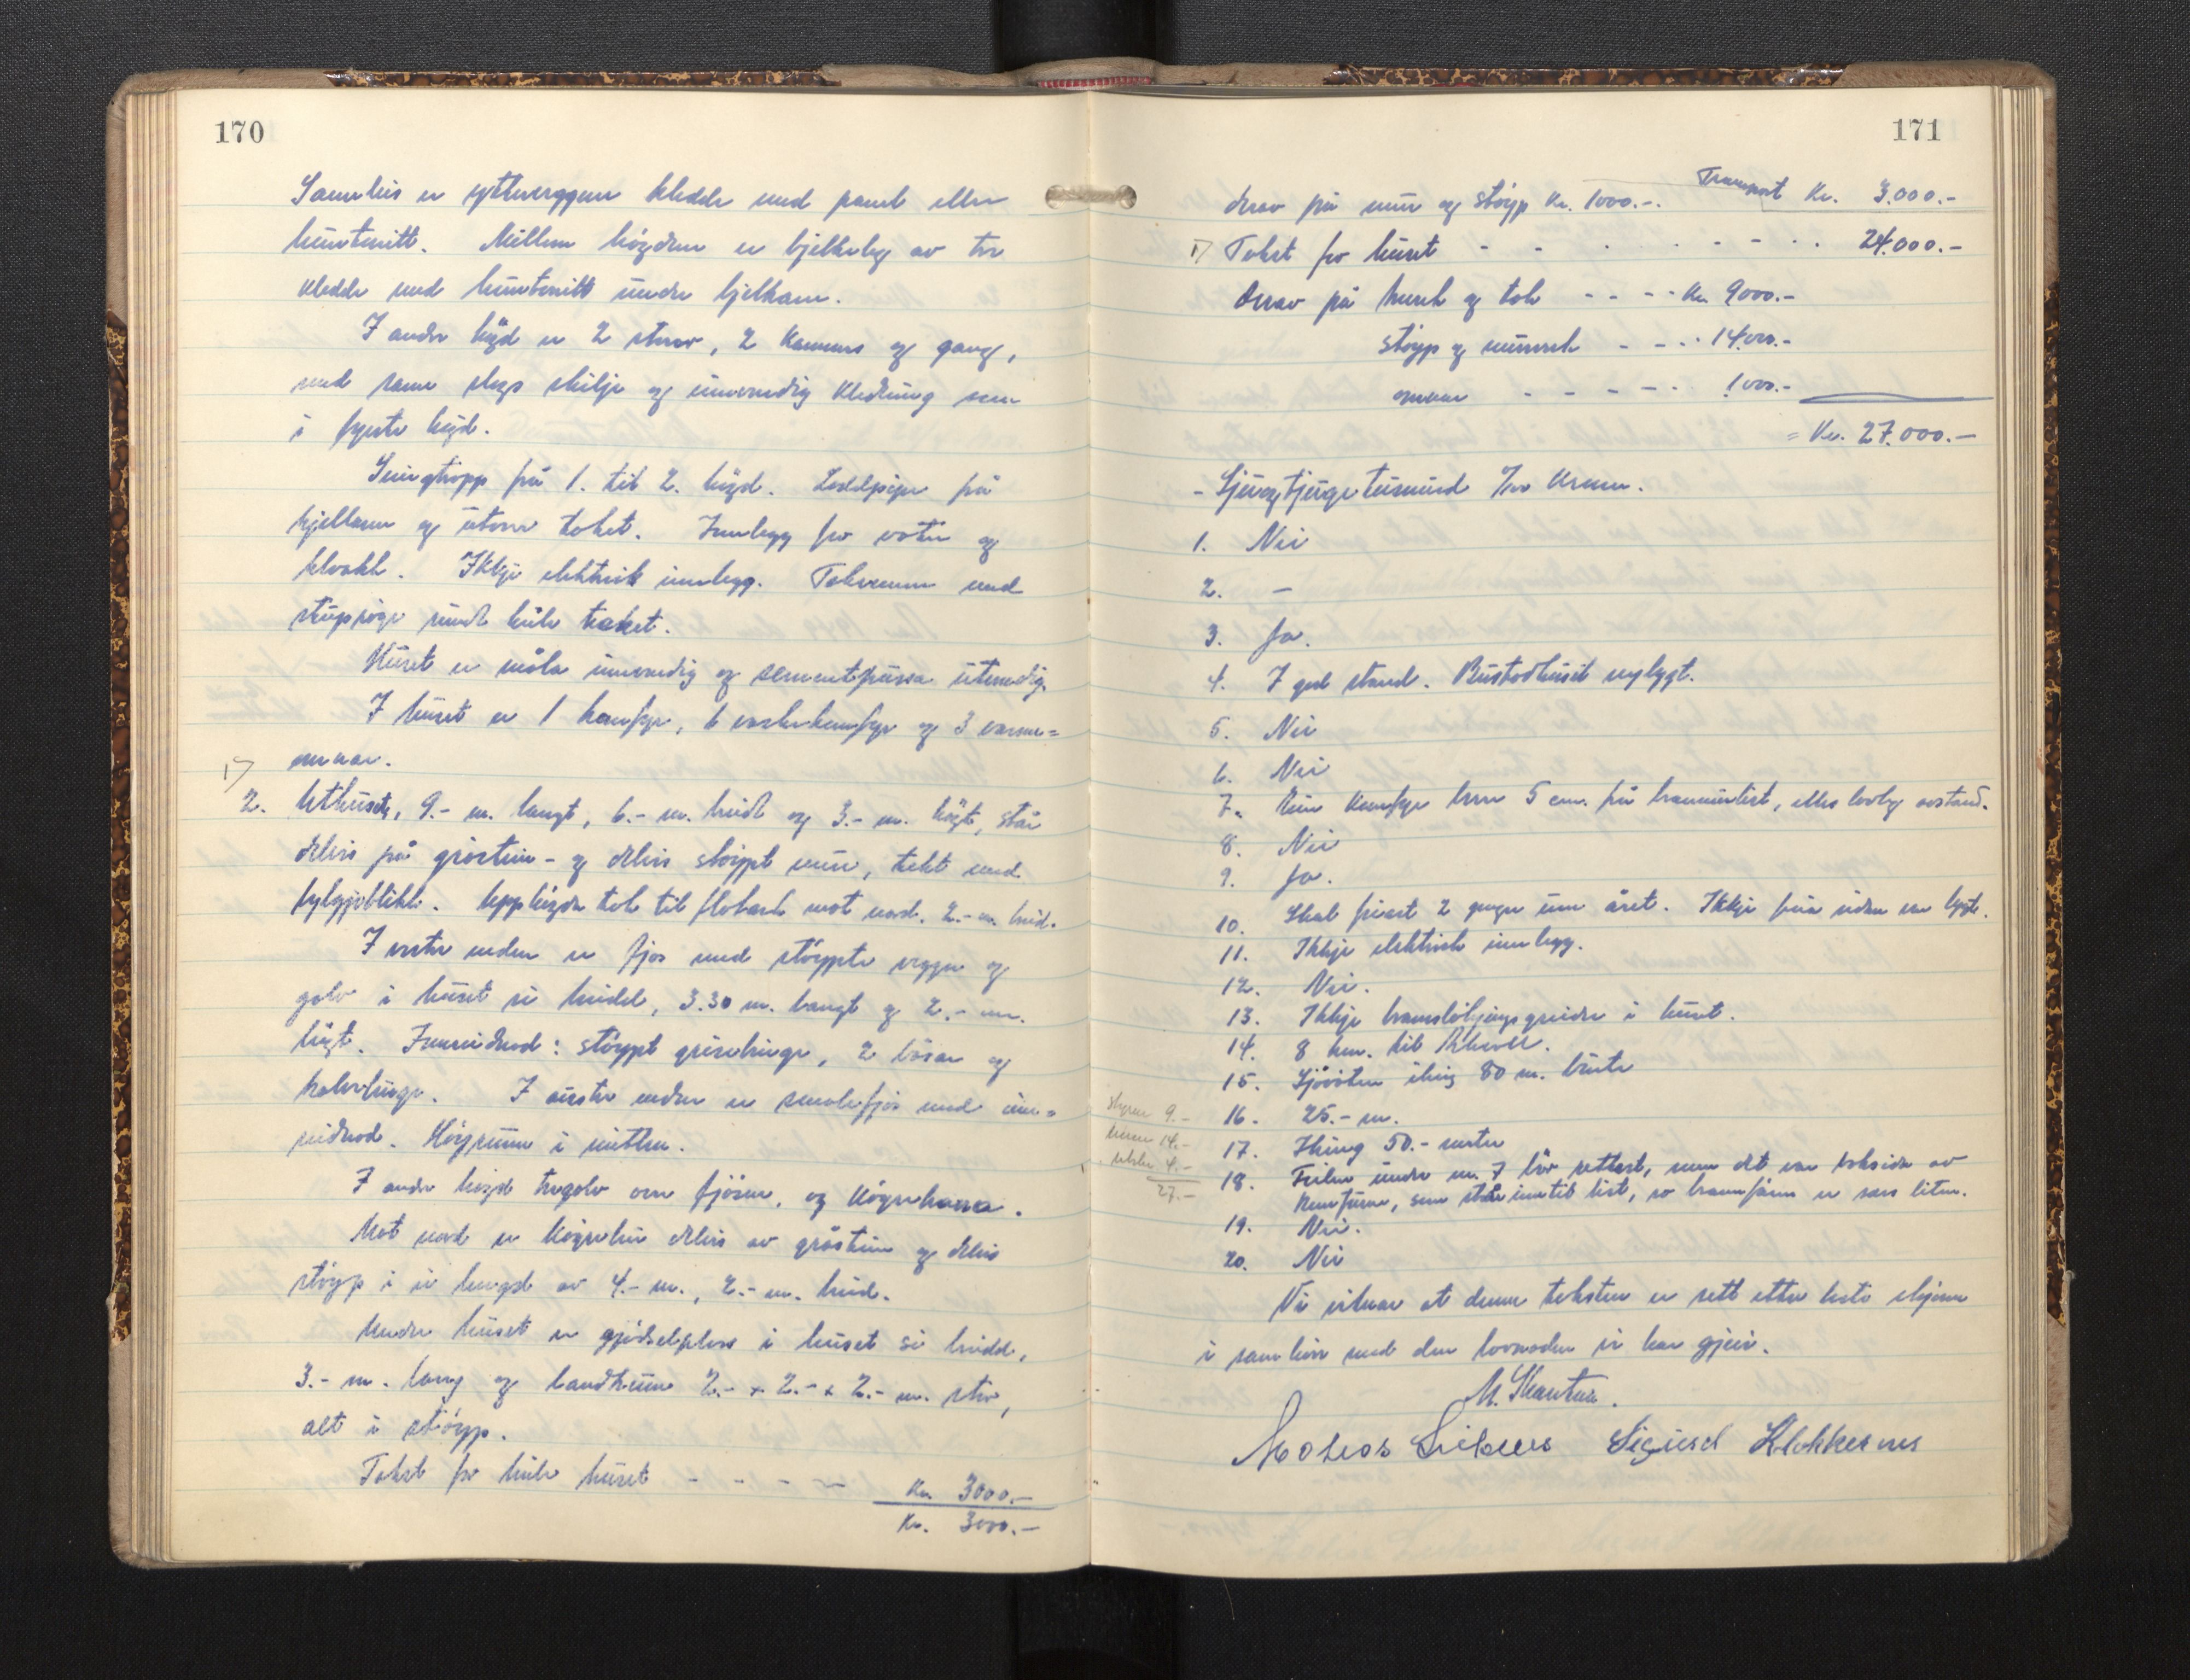 170
Samleis er ytterveggene kledde med panel eller
huntonitt. Millom högdene er bjelkelag av tre
kledde med huntonitt under bjelkane.
I andre högd er 2 stover, 2 kammers og gang,
med same slags skilje og innvendig kledning som
i fyrste högd.
Svingtropp frå 1. til 2. högd. Loddpipe frå
kjellaren og utover taket. Innlegg for vatn og
kloakk. Ikkje elektrisk innlegg. Takrenner med
stuprøyr rundt heile taket.
Huset er måla innvendig og sementpussa utvendig.
I huset er 1 komfyr, 1 vaskekomfyr og 3 varme=
omnar.
1)
2. Uthuset, 9.- m. langt, 6.- m. breidt og 3.- m. högt, står
delvis på gråstein- og delvis støypt mur, tekt med
bylgjeblikk. Upphögde tak til flobark mot nord, 2.- m. breid.
I vestre enden er fjøs med støypte vegger og
golv i huset si breidd, 3.30 m. langt og 2.- m.
högt. Innreidnad: støypt grisebinge, 2 båsar og
kalvebinge. I austre enden er smalefjøs med inn=
reidnad. Høyrum i mitten.
I andre høgd tregolv over fjøsen, og køyrebrua.
Mot nord er køyrebru delvis av gråstein og delvis
støyp i ei lengd av 4.- m., 2.- m. breid.
Under huset er gjødselplass i huset si breidd,
3.- m. lang og landkum 2.- x 2.- x 2.- m. stor,
alt i støyp.
Takst for heile huset - - - - Kr. 3000.-
Kr. 3000.-
171
Transport Kr. 3.000.-
Derav på mur og støyp Kr. 1000.-.
1) Takst for huset - - . . - - . . 24.000.-
Derav på treverk og tak - - - - Kr. 9000.-
støyp og murverk - - - . 14.000.-
omnar - - - - - . 1.000.-
= Kr. 27.000.-
- Sjuogtjugetusund 0/00 kroner.
1. Nei
2. -
3. Ja.
4. I god stand. Bustadhuset nybygt.
5. Nei
6. Nei
7. Ein komfyr berre 5 cm. frå brannmurlist, elles lovleg avstand.
8. Nei
9. Ja.
10. Skal feiast 2 gonger um året. Ikkje feia sidan var bygt.
11. Ikkje elektrisk innlegg.
12. Nei.
13. Ikkje brannsløkjingsgreidor i huset.
14. 8 km. til
15. Sjøvatn ikring 80 m. burte
styven 9.-
muren 14.-
uthus 4.-
27.-
16. 25.- m.
17. Ikring 50.- meter
18. Feilen under nr. 7 bør rettast, men det var baksida av
komfyren, som står inntil list, so brannfåren er særs liten.
19. Nei.
20. Nei
Vi vitnar at denne taksten er sett etter beste skjøn
i samhøve med den lovnaden vi har gjeve.
M. Skartun.
Sigurd Klokkernes